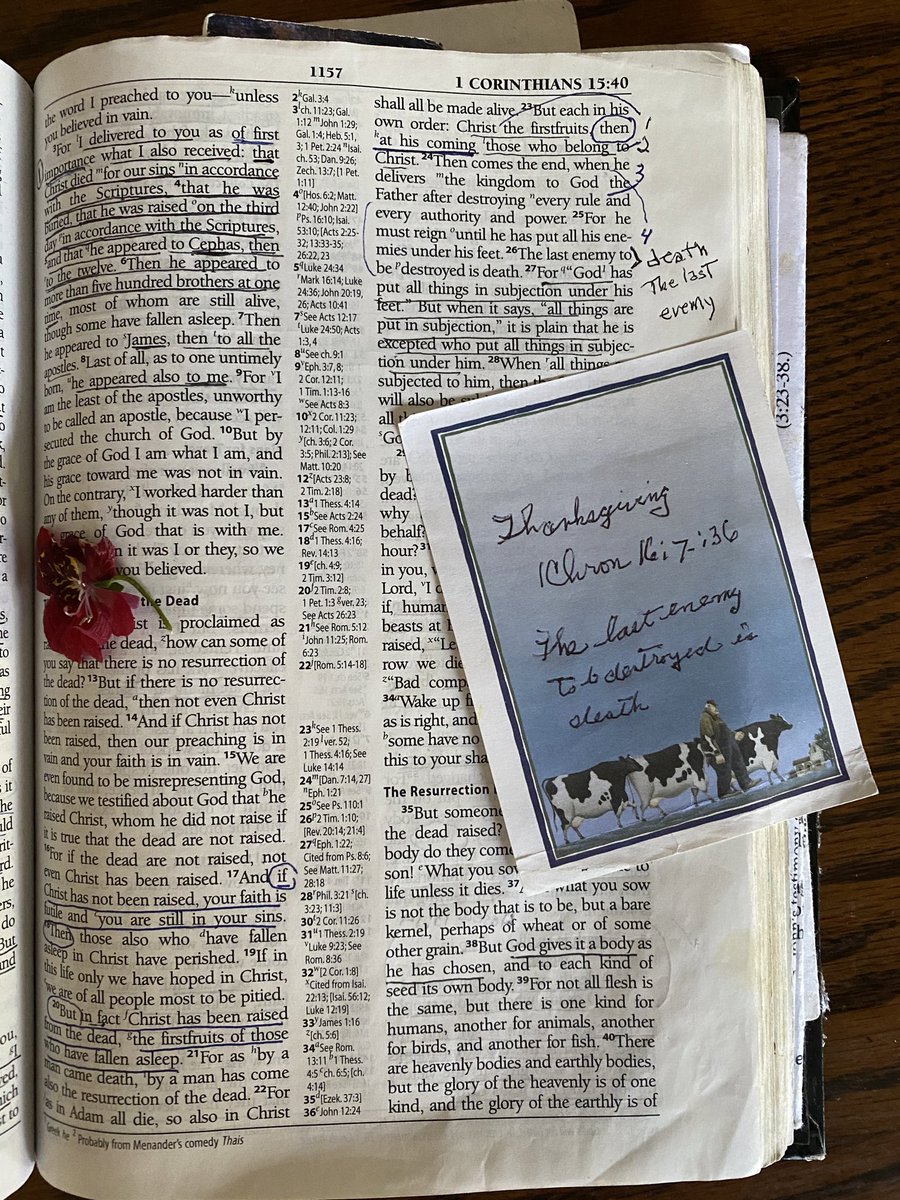 1157
1 CORINTHIANS 15:40
the word I preached to you—ᵏunless
you believed in vain.
³For ˡI delivered to you as of first
importance what I also received: that
Christ died ᵐfor our sins ⁿin accordance
with the Scriptures, ⁴that he was
buried, that he was raised ᵒon the third
day ᵖin accordance with the Scriptures,
⁵and that ᑫhe appeared to Cephas, then
ʳto the twelve. ⁶Then he appeared to
more than five hundred brothers at one
time, most of whom are still alive,
though some have fallen asleep. ⁷Then
he appeared to ˢJames, then ᵗto all the
apostles. ⁸Last of all, as to one untimely
born, ᵘhe appeared also to me. ⁹For ᵛI
am the least of the apostles, unworthy
to be called an apostle, because ʷI per-
secuted the church of God. ¹⁰But by
the grace of God I am what I am, and
his grace toward me was not in vain.
On the contrary, ˣI worked harder than
any of them, ʸthough it was not I, but
grace of God that is with me.
it was I or they, so we
you believed.
the Dead
is proclaimed as
the dead, ᶻhow can some of
you say that there is no resurrection of
the dead? ¹³But if there is no resurrec-
tion of the dead, ᵃthen not even Christ
has been raised. ¹⁴And if Christ has not
been raised, then our preaching is in
vain and your faith is in vain. ¹⁵We are
even found to be misrepresenting God,
because we testified about God that ᵇhe
raised Christ, whom he did not raise if
it is true that the dead are not raised.
¹⁶For if the dead are not raised, not
even Christ has been raised. ¹⁷And if
Christ has not been raised, your faith is
futile and ᶜyou are still in your sins.
¹⁸Then those also who ᵈhave fallen
asleep in Christ have perished. ¹⁹If in
this life only we have hoped in Christ,
ᵉwe are of all people most to be pitied.
²⁰But in fact ᶠChrist has been raised
from the dead, ᵍthe firstfruits of those
who have fallen asleep. ²¹For as ʰby a
man came death, ⁱby a man has come
also the resurrection of the dead. ²²For
ʲas in Adam all die, so also in Christ
2 ᵏGal. 3:4
3 ˡch. 11:23; Gal.
1:12 ᵐJohn 1:29;
Gal. 1:4; Heb. 5:1,
3; 1 Pet. 2:24 ⁿIsai.
ch. 53; Dan. 9:26;
Zech. 13:7; [1 Pet.
1:11]
4 ᵒ[Hos. 6:2; Matt.
12:40; John 2:22]
ᵖPs. 16:10; Isai.
53:10; [Acts 2:25-
32; 13:33-35;
26:22, 23
5 ᑫLuke 24:34
ʳMark 16:14; Luke
24:36; John 20:19,
26; Acts 10:41
7 ˢSee Acts 12:17
ᵗLuke 24:50; Acts
1:3, 4
8 ᵘSee ch. 9:1
9 ᵛEph. 3:7, 8;
2 Cor. 12:11;
1 Tim. 1:13-16
ʷSee Acts 8:3
10 ˣ2 Cor. 11:23;
12:11; Col. 1:29
ʸ[ch. 3:6; 2 Cor.
3:5; Phil. 2:13]; See
Matt. 10:20
12 ᶻ[Acts 23:8;
2 Tim. 2:18]
13 ᵃ1 Thess. 4:14
15 ᵇSee Acts 2:24
17 ᶜSee Rom. 4:25
18 ᵈ1 Thess. 4:16;
Rev. 14:13
19 ᵉ[ch. 4:9;
2 Tim. 3:12]
20 ᶠ2 Tim. 2:8;
1 Pet. 1:3 ᵍver. 23;
See Acts 26:23
21 ʰSee Rom. 5:12
ⁱJohn 11:25; Rom.
6:23
22 ʲ[Rom. 5:14-18]
23 ᵏSee 1 Thess.
2:19 ˡver. 52;
1 Thess. 4:16; See
Luke 14:14
24 ᵐ[Dan. 7:14, 27]
ⁿEph. 1:21
25 ᵒSee Ps. 110:1
26 ᵖ2 Tim. 1:10;
[Rev. 20:14; 21:4]
27 ᑫEph. 1:22;
Cited from Ps. 8:6;
See Matt. 11:27;
28:18
28 ʳPhil. 3:21 ˢ[ch.
3:23; 11:3]
30 ᵗ2 Cor. 11:26
31 ᵘ1 Thess. 2:19
ᵛLuke 9:23; See
Rom. 8:36
32 ʷ[2 Cor. 1:8]
ˣCited from Isai.
22:13; [Isai. 56:12;
Luke 12:19]
33 ʸJames 1:16
ᶻ[ch. 5:6]
34 ᵃSee Rom.
13:11 ᵇ1 Thess.
4:5 ᶜch. 6:5; [ch.
4:14]
35 ᵈ[Ezek. 37:3]
36 ᵉJohn 12:24
shall all be made alive. ²³But each in his
own order: Christ the firstfruits, then
ᵏat his coming ˡthose who belong to
Christ. ²⁴Then comes the end, when he
delivers ᵐthe kingdom to God the
Father after destroying ⁿevery rule and
every authority and power. ²⁵For he
must reign ᵒuntil he has put all his ene-
mies under his feet. ²⁶The last enemy to
be ᵖdestroyed is death. ²⁷For ᑫ“God has
put all things in subjection under his
feet.” But when it says, “all things are
put in subjection,” it is plain that he is
excepted who put all things in subjec-
tion under him. ²⁸When ʳall things
subjected to him, then
will also be
all
dead?
why
behalf?
hour?
in you,
Lord, ᵛI
if, human
beasts at
raised, ˣ“Le
row we die
ᶻ“Bad comp
³⁴ᵃWake up
as is right, and
ᵇsome have no
this to your sha
The Resurrection
³⁵But someone
the dead raised?
body do they come
son! ᵉWhat you sow
life unless it dies. ³⁷ what you sow
is not the body that is to be, but a bare
kernel, perhaps of wheat or of some
other grain. ³⁸But God gives it a body as
he has chosen, and to each kind of
seed its own body. ³⁹For not all flesh is
the same, but there is one kind for
humans, another for animals, another
for birds, and another for fish. ⁴⁰There
are heavenly bodies and earthly bodies,
but the glory of the heavenly is of one
kind, and the glory of the earthly is of
1
2
3
4
death
The last
enemy
Thanksgiving
1 Chron 16:7-:36
The last enemy
To b destroyed is
death
(3:23-38.)
Greek he ² Probably from Menander's comedy Thais